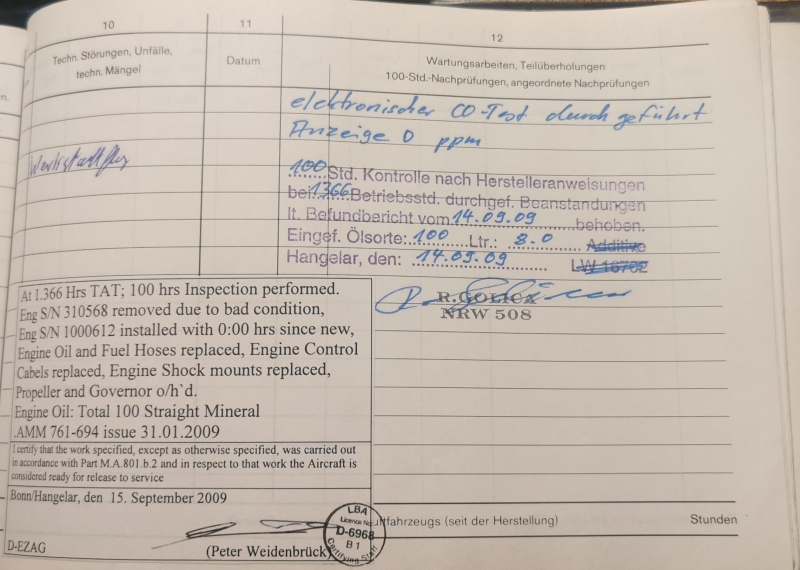 10
11
12
n.
Techn. Störungen, Unfälle,
techn. Mängel
Datum
Wartungsarbeiten, Teilüberholungen
100-Std.-Nachprüfungen, angeordnete Nachprüfungen
elektronischer CO-Test durchgeführt
Anzeige 0 ppm
Werkstattflug
100 Std. Kontrolle nach Herstelleranweisungen
bei 1366 Betriebsstd. durchgef. Beanstandungen
lt. Befundbericht vom 14.09.09 behoben.
Eingef. Ölsorte: 100 Ltr.: 8.0 Additive
Hangelar, den: 14.09.09 LW 16702
R.GOLICZ
NRW 508
At 1.366 Hrs TAT; 100 hrs Inspection performed.
Eng S/N 310568 removed due to bad condition,
Eng S/N 1000612 installed with 0:00 hrs since new,
Engine Oil and Fuel Hoses replaced, Engine Control
Cabels replaced, Engine Shock mounts replaced,
Propeller and Governor o/h`d.
Engine Oil: Total 100 Straight Mineral
.AMM 761-694 issue 31.01.2009
I certify that the work specified, except as otherwise specified, was carried out
in accordance with Part M.A.801.b.2 and in respect to that work the Aircraft is
considered ready for release to service
Bonn/Hangelar, den 15. September 2009
LBA
Licence No.
D-6968
B 1
Certifying Staff
uftfahrzeugs (seit der Herstellung) Stunden
D-EZAG
(Peter Weidenbrück)